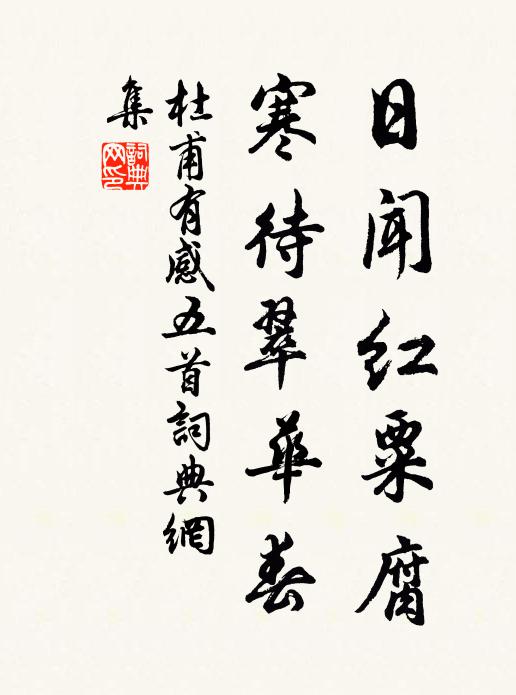 日聞紅粟腐
寒待翠華春
杜甫有感五首詞典網
集
詞典网印